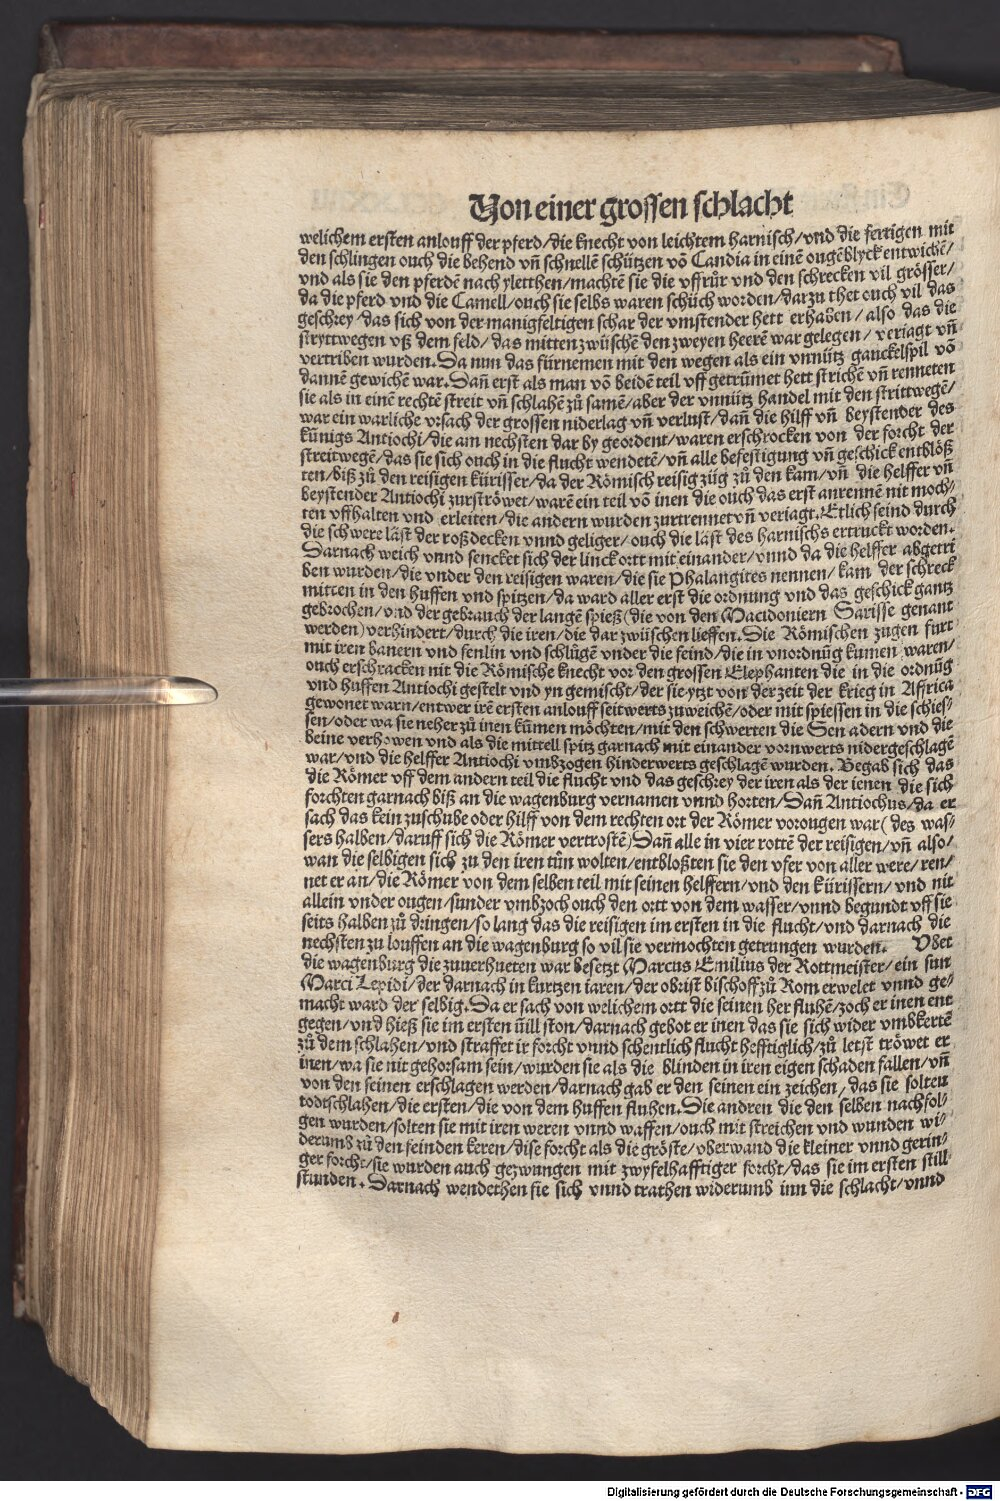 Von einer grossen schlacht
welichem ersten anlouff der pferd/die knecht von leichtem harnisch/vnd die fertigen mit
den schlingen ouch die behend vn̄ schnellē schützen vō Candia in einē ougēblyck entwichē/
vnd als sie den pferdē nach yletthen/machtē sie die vffrůr vnd den schrecken vil grösser/
da die pferd vnd die Camell/ouch sie selbs waren schüch worden/darzu thet ouch vil das
geschrey/das sich von der manigfeltigen schar der vmstender hett erhaben/also das die
stryttwegen vß dem feld/das mitten zwüschē den zweyen heerē war gelegen/veriagt vn̄
vertriben wurden.Da nun das fürnemen mit den wegen als ein vnnütz ganckelspil vō
dannē gewichē war.Dan̄ erst als man vō beidē teil vff getrūmet hett strichē vn̄ renneten
sie als in einē rechtē streit vn̄ schlahē zů samē/aber der vnnütz handel mit den strittwegē/
war ein warliche vrsach der grossen niderlag vn̄ verlust/dan̄ die hilff vn̄ beystender des
künigs Antiochi/die am nechsten dar by geordent/waren erschrocken von der forcht der
streitwegē/das sie sich ouch in die flucht wendetē/vn̄ alle befestigung vn̄ geschick entblöß
ten/biß zů den reisigen kürisser/da der Römisch reisig züg zů den kam/vn̄ die helffer vn̄
beystender Antiochi zurströwet/warē ein teil vō inen die ouch das erst anrennē nit moch⸗
ten vffhalten vnd erleiten/die andern wurden zurtrennet vn̄ veriagt.Etlich seind durch
die schwere läst der roßdecken vnnd geliger/ouch die läst des harnischs ertruckt worden.
Darnach weich vnnd sencket sich der linck ortt mit einander/vnnd da die helffer abgetri
ben wurden/die vnder den reisigen waren/die sie Phalangites nennen/kam der schreck
mitten in den huffen vnd spitzen/da ward aller erst die ordnung vnd das geschick gantz
gebrochen/vnd der gebrauch der langē spieß(die von den Macidoniern Sarisse genant
werden)verhindert/durch die iren/die dar zwüschen lieffen.Die Römischen zugen furt
mit iren banern vnd fenlin vnd schlůgē vnder die feind/die in vnordnūg kumen waren/
ouch erschracken nit die Römische knecht vor den grossen Elephanten die in die ordnūg
vnd huffen Antiochi gestelt vnd yn gemischt/der sie ytzt von der zeit der krieg in Affrica
gewonet warn/entwer irē ersten anlouff seitwerts zuweichē/oder mit spiessen in die schies⸗
sen/oder wa sie neher zů inen kūmen möchten/mit den schwerten die Sen adern vnd die
beine verhowen vnd als die mittell spitz garnach mit einander vornwerts nidergeschlagē
war/vnd die helffer Antiochi vmbzogen hinderwerts geschlagē wurden. Begab sich das
die Römer vff dem andern teil die flucht vnd das geschrey der iren als der ienen die sich
forchten garnach biß an die wagenburg vernamen vnnd horten/Dan̄ Antiochus/da er
sach das kein zuschube oder hilff von dem rechten ort der Römer vorougen war(des was⸗
sers halben/daruff sich die Römer vertrostē)Dan̄ alle in vier rottē der reisigen/vn̄ also/
wan die selbigen sich zu den iren tůn wolten/entbloßten sie den vfer von aller were/ren/
net er an/die Römer von dem selben teil mit seinen helffern/vnd den kürissern/vnd nit
allein vnder ougen/sunder vmbzoch ouch den ortt von dem wasser/vnnd begundt vff sie
seits halben zů dringen/so lang das die reisigen im ersten in die flucht/vnd darnach die
nechsten zu louffen an die wagenburg so vil sie vermochten getrungen wurden. Vber
die wagenburg die zuuerhueten war besetzt Marcus Emilius der Rottmeister/ein sun
Marci Lepidi/der darnach in kurtzen iaren/der obrist bischoff zů Rom erwelet vnnd ge⸗
macht ward der selbig.Da er sach von welichem ortt die seinen her fluhē/zoch er inen ent
gegen/vnd hieß sie im ersten still ston/darnach gebot er inen das sie sich wider vmbkertē
zů dem schlahen/vnd straffet ir forcht vnnd schentlich flucht hefftiglich/zů letst tröwet er
inen/wa sie nit gehorsam sein/wurden sie als die blinden in iren eigen schaden fallen/vn̄
von den seinen erschlagen werden/darnach gab er den seinen ein zeichen/das sie solten
todtschlahen/die ersten/die von dem huffen fluhen.Die andren die den selben nachfol⸗
gen wurden/solten sie mit iren weren vnnd waffen/ouch mit streichen vnd wunden wi⸗
derumb zů den feinden keren/dise forcht als die gröste/vberwand die kleiner vnnd gerin⸗
ger forcht/sie wurden auch gezwungen mit zwyfelhafftiger forcht/das sie im ersten still
stunden.Darnach wendethen sie sich vnnd trathen widerumb inn die schlacht/vnnd
Digitalisierung gefördert durch die Deutsche Forschungsgemeinschaft - DFG